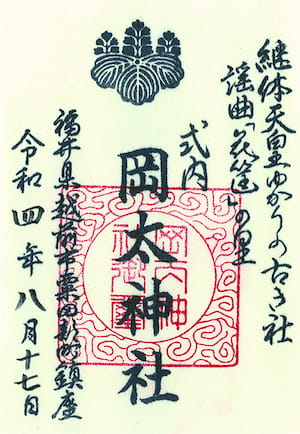 継体天皇ゆかりの古き社
謡曲「花筐」の里
式内
岡太神社
福井県越前市粟田部町鎮座
令和四年八月十七日